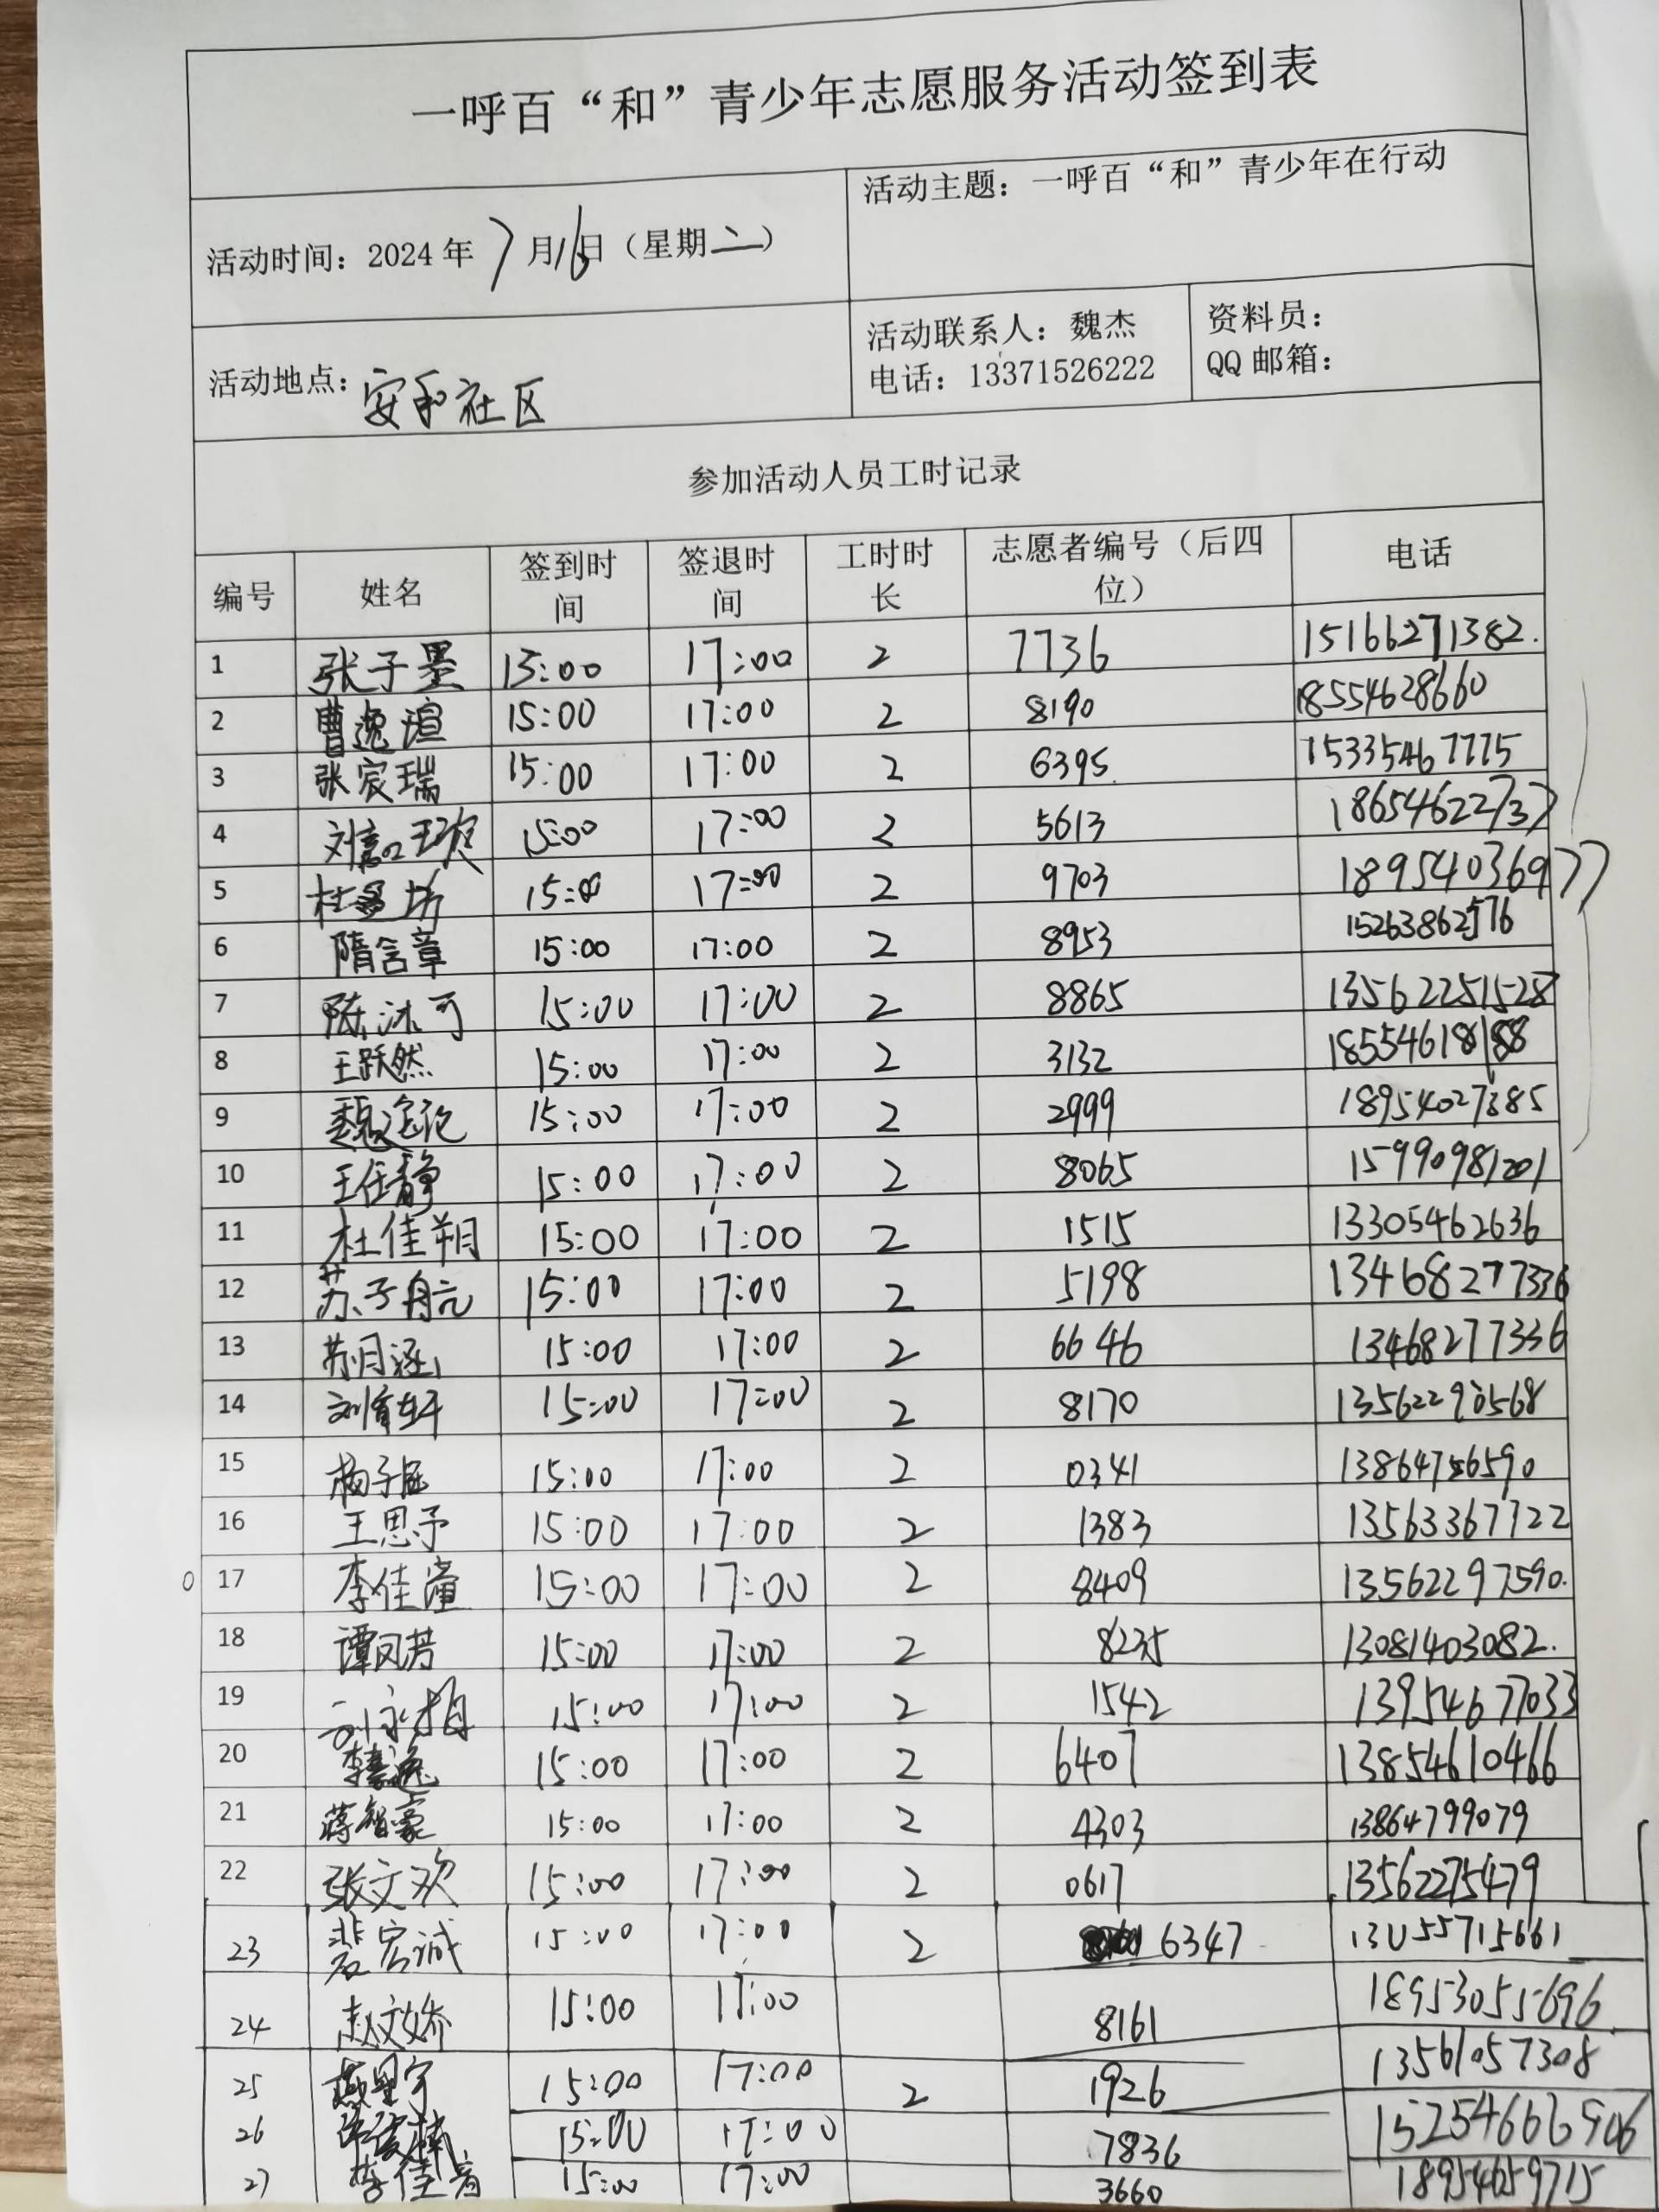 一呼百“和”青少年志愿服务活动签到表
活动时间：2024年7月16日（星期二）
活动主题：一呼百“和”青少年在行动
活动地点：安和社区
活动联系人：魏杰
电话：13371526222
资料员：
QQ邮箱：
参加活动人员工时记录
编号 姓名 签到时间 签退时间 工时时长 志愿者编号（后四位） 电话
1 张子墨 15:00 17:00 2 7736 15166271382.
2 曹逸瑄 15:00 17:00 2 8190 18554628660
3 张宸瑞 15:00 17:00 2 6395 15335467775
4 15:00 17:00 2 5613 18654622737
5 15:00 17:00 2 9703 18954036977
6 隋含章 15:00 17:00 2 8953 15263862576
7 陈沐可 15:00 17:00 2 8865 13562251528
8 王跃然 15:00 17:00 2 3132 18554618188
9 15:00 17:00 2 2999 18954027385
10 王任静 15:00 17:00 2 8065 15990981201
11 杜佳朔 15:00 17:00 2 1515 13305462636
12 苏子航 15:00 17:00 2 5198 13468277336
13 苏月涵 15:00 17:00 2 6646 13468277336
14 15:00 17:00 2 8170 13562290568
15 15:00 17:00 2 0341 13864756590
16 王思予 15:00 17:00 2 1383 13563367122
17 李佳潼 15:00 17:00 2 8409 13562297590.
18 谭凤芳 15:00 17:00 2 8235 13081403082.
19 15:00 17:00 2 1542 13954677033
20 15:00 17:00 2 6407 13854610466
21 蒋智豪 15:00 17:00 2 4303 13864799079
22 张文欢 15:00 17:00 2 0617 13562275479
23 15:00 17:00 2 6347 13055715661
24 赵文娇 15:00 17:00 8161 18953055696
25 15:00 17:00 2 1926 13561057308
26 15:00 17:00 7836 15254666906
27 李佳音 15:00 17:00 3660 18954659715